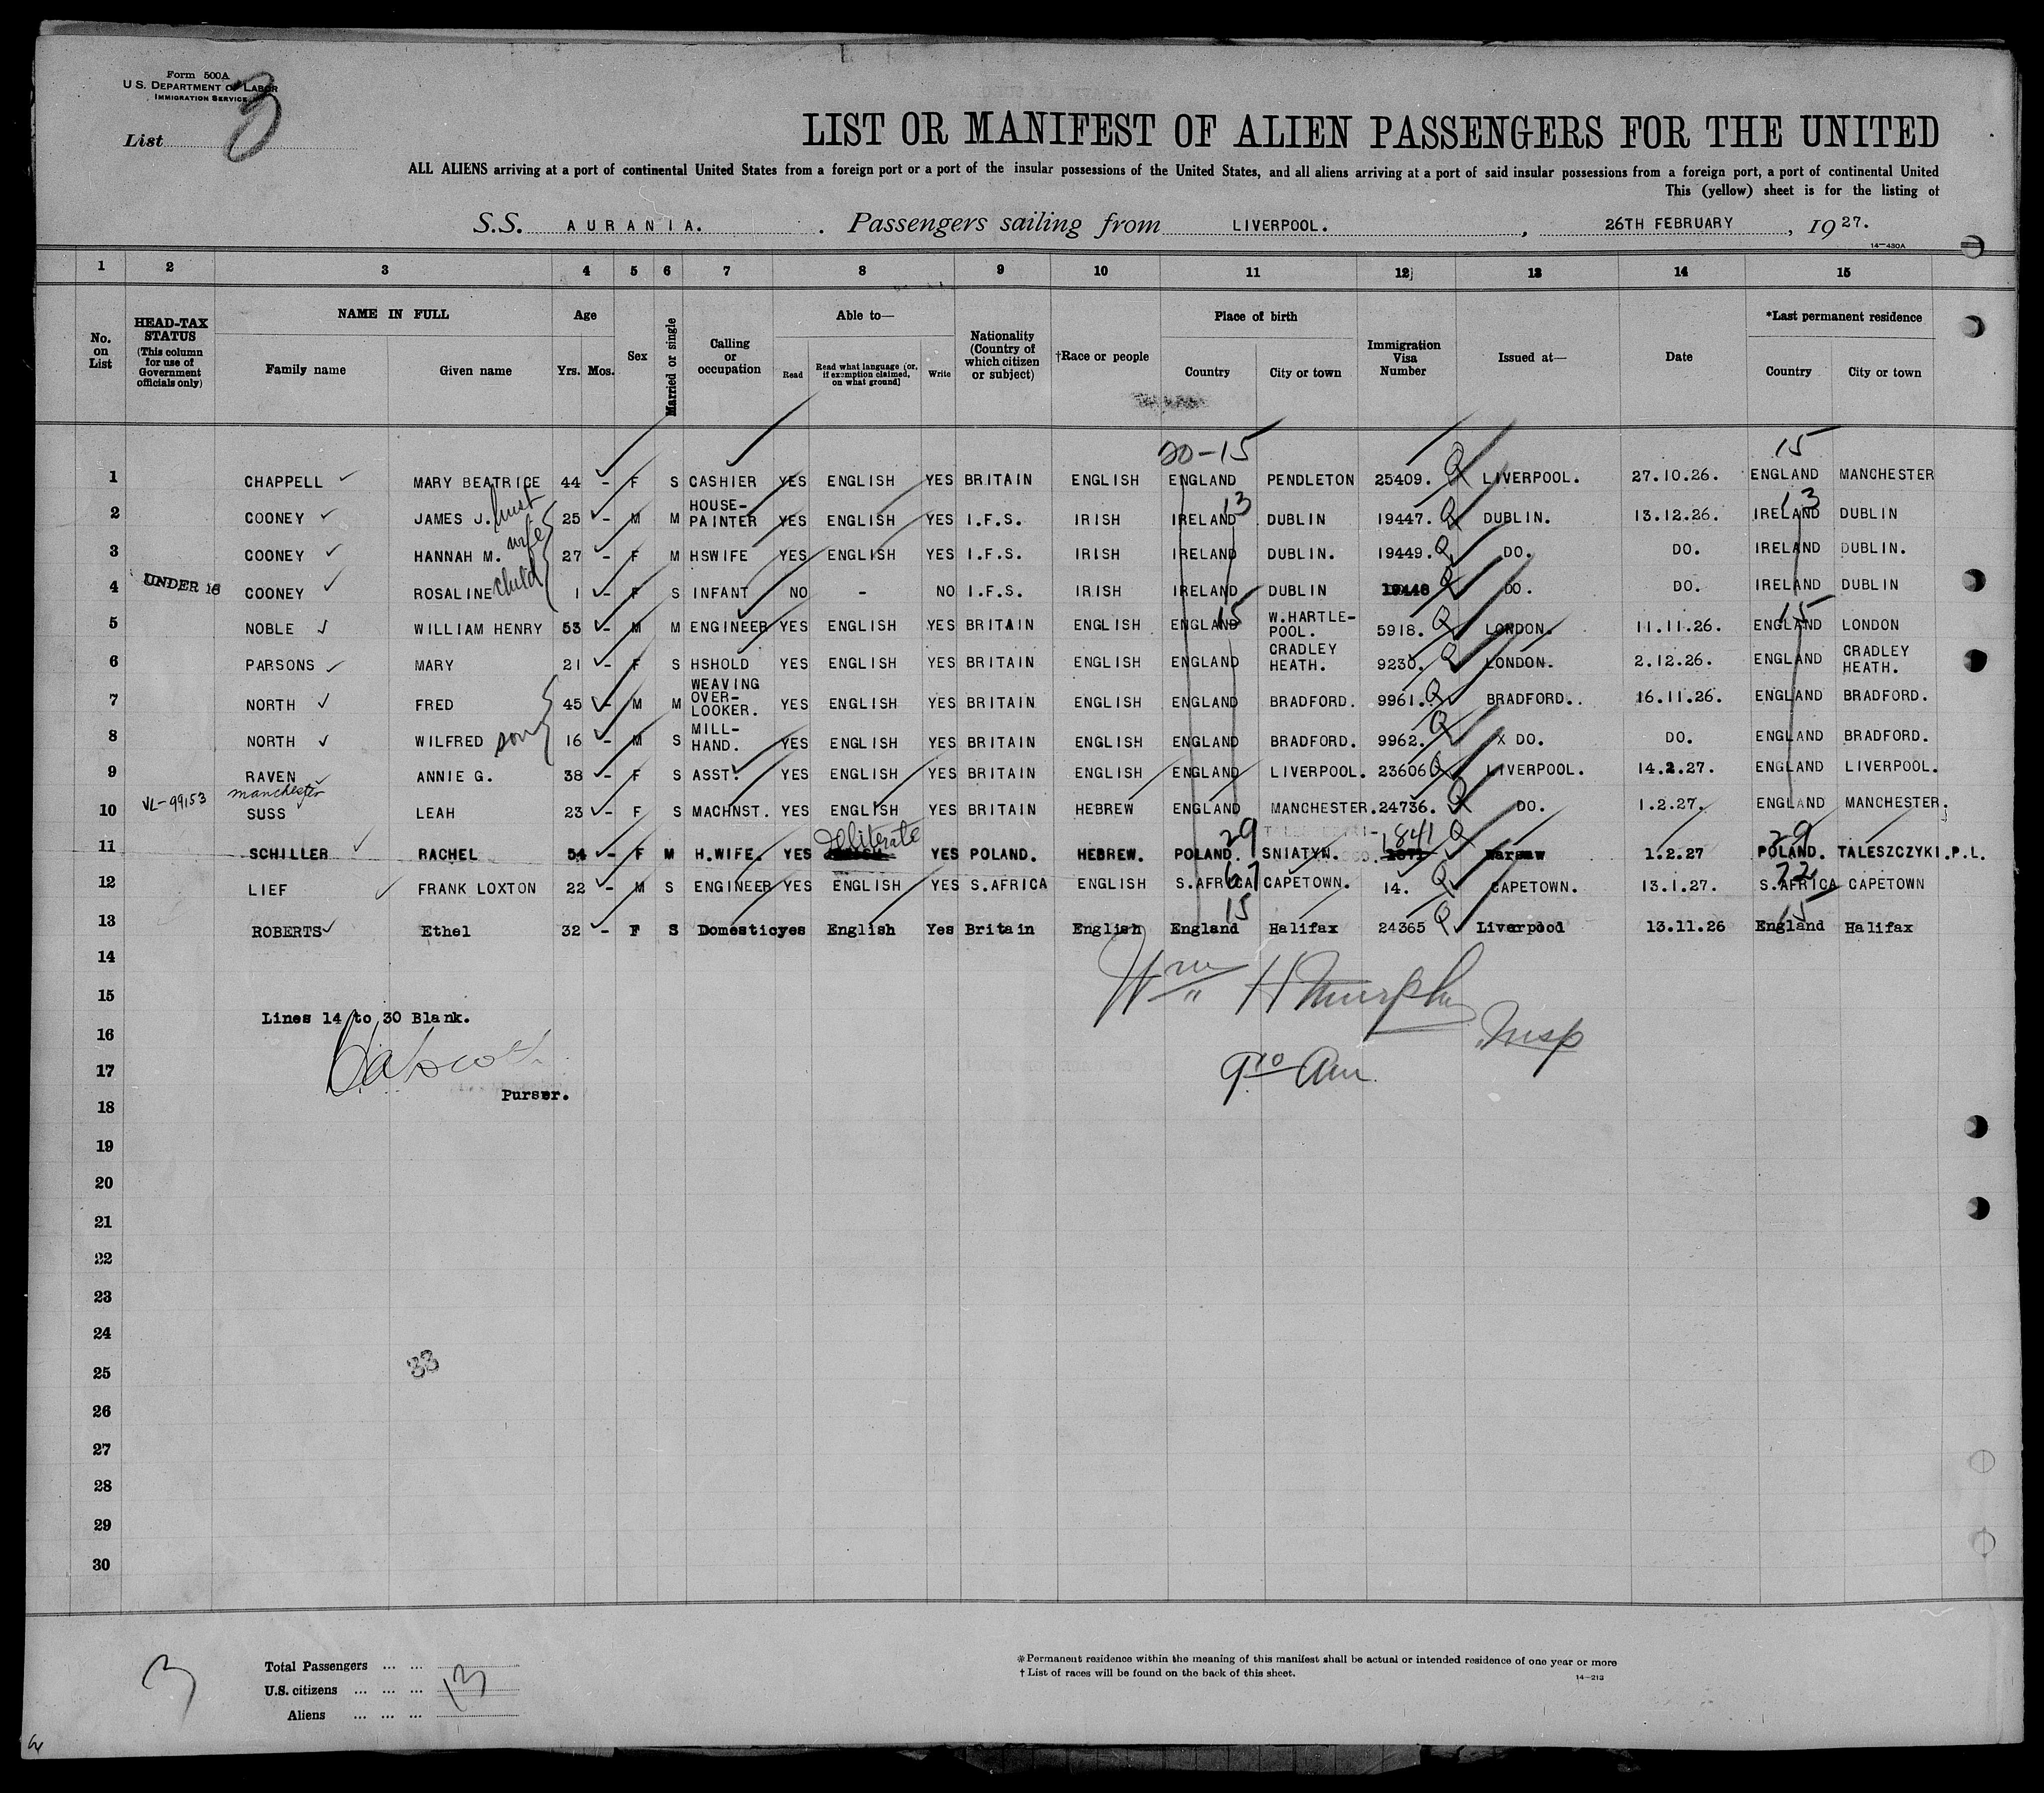 Form 500A
U.S. DEPARTMENT OF LABOR
IMMIGRATION SERVICE
List 3
LIST OR MANIFEST OF ALIEN PASSENGERS FOR THE UNITED
ALL ALIENS arriving at a port of continental United States from a foreign port or a port of the insular possessions of the United States, and all aliens arriving at a port of said insular possessions from a foreign port, a port of continental United
This (yellow) sheet is for the listing of
S.S. AURANIA. Passengers sailing from LIVERPOOL. , 26TH FEBRUARY , 1927.
14-430A
1 2 3 4 5 6 7 8 9 10 11 12 13 14 15
No. on List
HEAD-TAX STATUS (This column for use of Government officials only)
NAME IN FULL
Family name Given name
Age
Yrs. Mos.
Sex
Married or single
Calling or occupation
Able to—
Read Read what language (or, if exemption claimed, on what ground) Write
Nationality (Country of which citizen or subject)
†Race or people
Place of birth
Country City or town
Immigration Visa Number
Issued at—
Date
*Last permanent residence
Country City or town
20-15 15
1 CHAPPELL MARY BEATRICE 44 - F S CASHIER YES ENGLISH YES BRITAIN ENGLISH ENGLAND PENDLETON 25409. Q LIVERPOOL. 27.10.26. ENGLAND MANCHESTER
2 COONEY JAMES J. hust 25 - M M HOUSE-PAINTER YES ENGLISH YES I.F.S. IRISH IRELAND 13 DUBLIN 19447. Q DUBLIN. 13.12.26. IRELAND 13 DUBLIN
3 COONEY HANNAH M. wife 27 - F M HSWIFE YES ENGLISH YES I.F.S. IRISH IRELAND DUBLIN. 19449. Q DO. DO. IRELAND DUBLIN.
4 UNDER 16 COONEY ROSALINE child 1 - F S INFANT NO - NO I.F.S. IRISH IRELAND DUBLIN 19448 Q DO. DO. IRELAND DUBLIN
5 NOBLE WILLIAM HENRY 53 - M M ENGINEER YES ENGLISH YES BRITAIN ENGLISH ENGLAND 15 W.HARTLE-POOL. 5918. Q LONDON. 11.11.26. ENGLAND 15 LONDON
6 PARSONS MARY 21 - F S HSHOLD YES ENGLISH YES BRITAIN ENGLISH ENGLAND CRADLEY HEATH. 9230. Q LONDON. 2.12.26. ENGLAND CRADLEY HEATH.
7 NORTH FRED 45 - M M WEAVING OVER-LOOKER. YES ENGLISH YES BRITAIN ENGLISH ENGLAND BRADFORD. 9961. Q BRADFORD.. 16.11.26. ENGLAND BRADFORD.
8 NORTH WILFRED son 16 - M S MILL-HAND. YES ENGLISH YES BRITAIN ENGLISH ENGLAND BRADFORD. 9962. Q X DO. DO. ENGLAND BRADFORD.
9 RAVEN ANNIE G. 38 - F S ASST. YES ENGLISH YES BRITAIN ENGLISH ENGLAND LIVERPOOL. 23606 Q LIVERPOOL. 14.2.27. ENGLAND LIVERPOOL.
manchester
10 VL-99153 SUSS LEAH 23 - F S MACHNST. YES ENGLISH YES BRITAIN HEBREW ENGLAND MANCHESTER. 24736. Q DO. 1.2.27. ENGLAND MANCHESTER.
illiterate 29 1841 Q 29
11 SCHILLER RACHEL 54 - F M H.WIFE. YES YES POLAND. HEBREW. POLAND. SNIATYN. Warsaw 1.2.27 POLAND. TALESZCZYKI.P.L.
12 LIEF FRANK LOXTON 22 - M S ENGINEER YES ENGLISH YES S.AFRICA ENGLISH S.AFRICA 67 CAPETOWN. 14. Q CAPETOWN. 13.1.27. S.AFRICA 72 CAPETOWN
15 15
13 ROBERTS Ethel 32 - F S Domestic yes English Yes Britain English England Halifax 24365 Q Liverpool 13.11.26 England Halifax
14
15
Lines 14 to 30 Blank.
Wm H Murphy
Insp
16
17
9 10 Am
Purser.
18
19
20
21
22
23
24
33
25
26
27
28
29
30
3
Total Passengers ... ...
U.S. citizens ... ... ... 13
Aliens ... ... ...
*Permanent residence within the meaning of this manifest shall be actual or intended residence of one year or more
† List of races will be found on the back of this sheet.
14-213